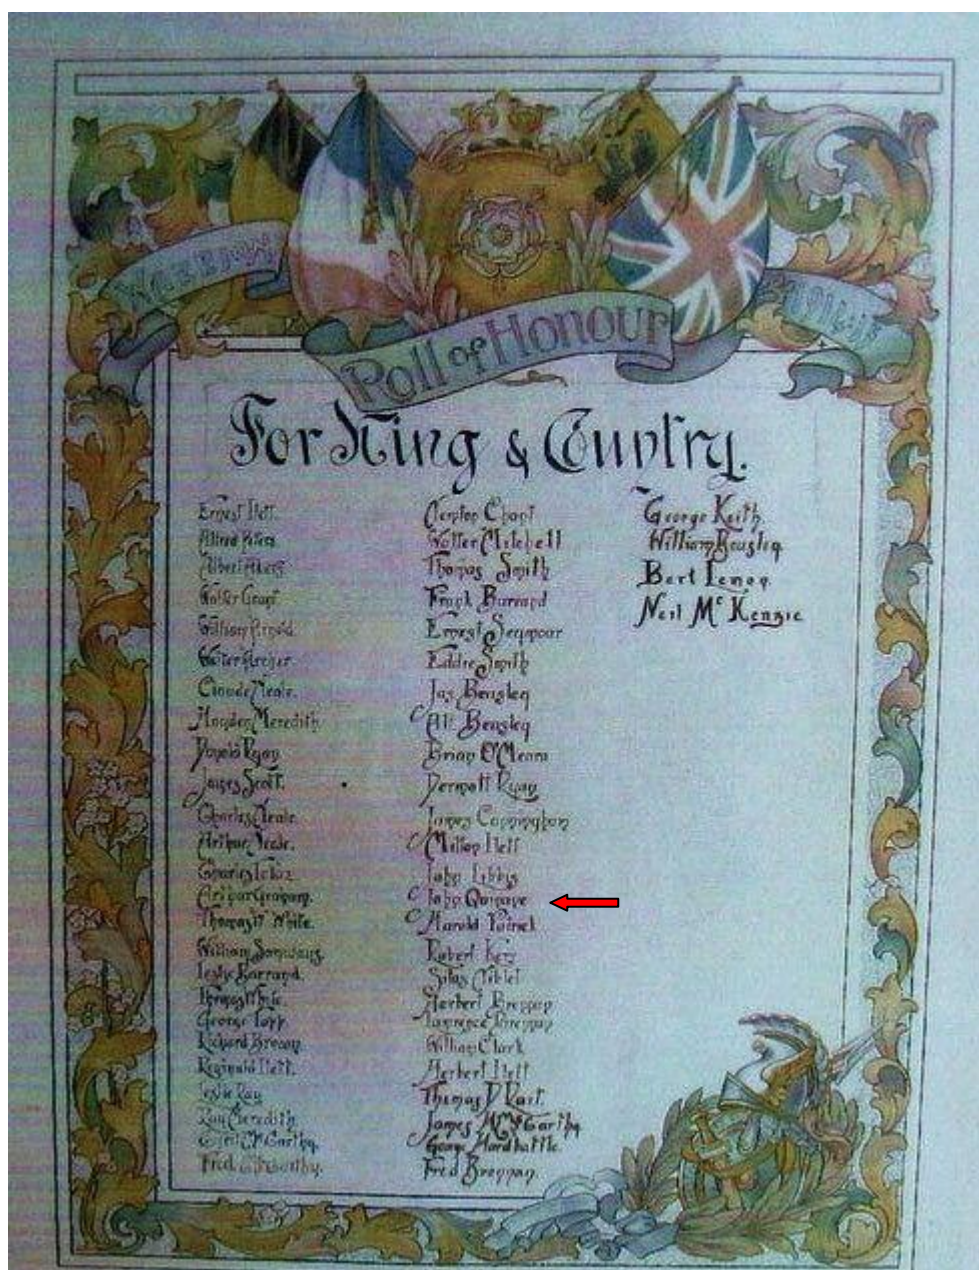 Roll of Honour
For King & Country.
Ernest Nett.
Alfred Peters
Albert Akers
Walter Grant
William Arnold.
Walter Archer
Claude Neale.
Hayden Meredith
Donald Ryan
James Scott.
Charles Neale.
Arthur Neale.
Charles
Arthur Graham.
Thomas White.
William
Leslie Barrand.
Thomas
George Topp
Richard Brown.
Reginald Nett.
Leslie Ray
Ray Meredith
Cyril McCarthy.
Fred
Clenton Chant
Walter Mitchell
Thomas Smith
Frank Barrand
Ernest Seymour
Eddie Smith
Jas Beasley
Alf. Beasley
Brian O'Meara
Dermott Ryan
James Connington
Milton Nett
John Libbis
John Quinane
Harold Patrick
Robert Kerr
Silas Niblet
Herbert Brennan
Lawrence Brennan
William Clark
Herbert Nett
Thomas D Hart.
James McCarthy
George Hardbattle.
Fred Brennan.
George Keith
William Beasley
Bert Lemon
Neil McKenzie